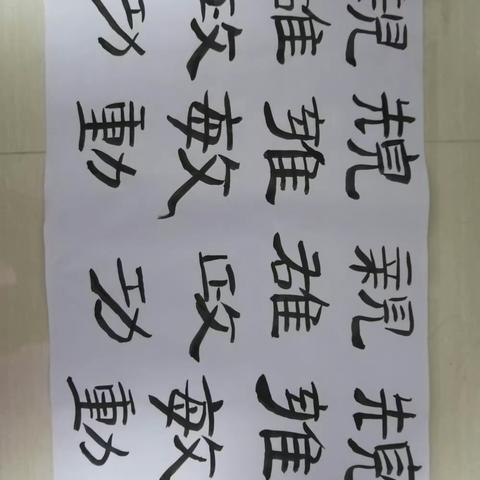 親規親規
雄雅雄雅
政敏政敏
功動功動